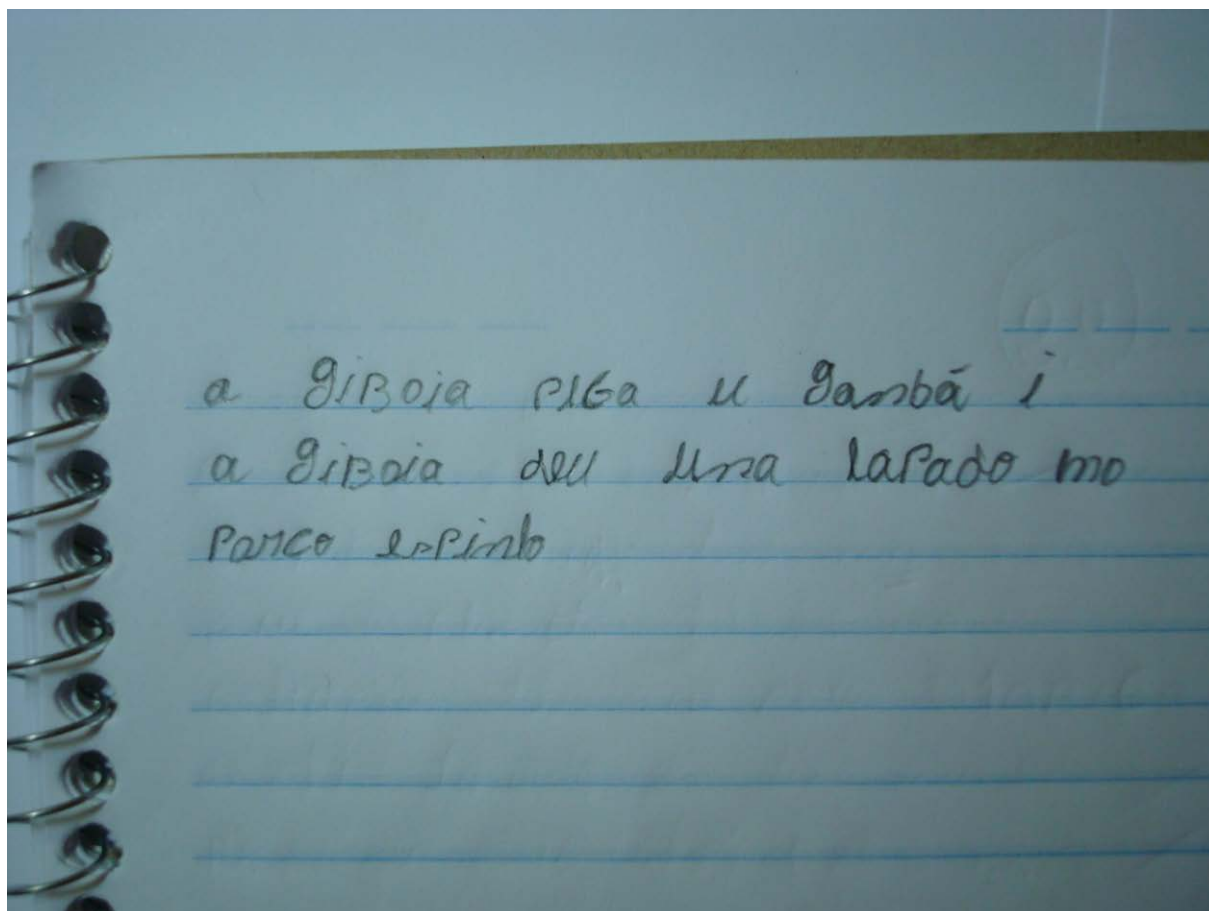 a giBoia piGa u ganbá i
a giBoia deu uma lapado mo
parco espinlo